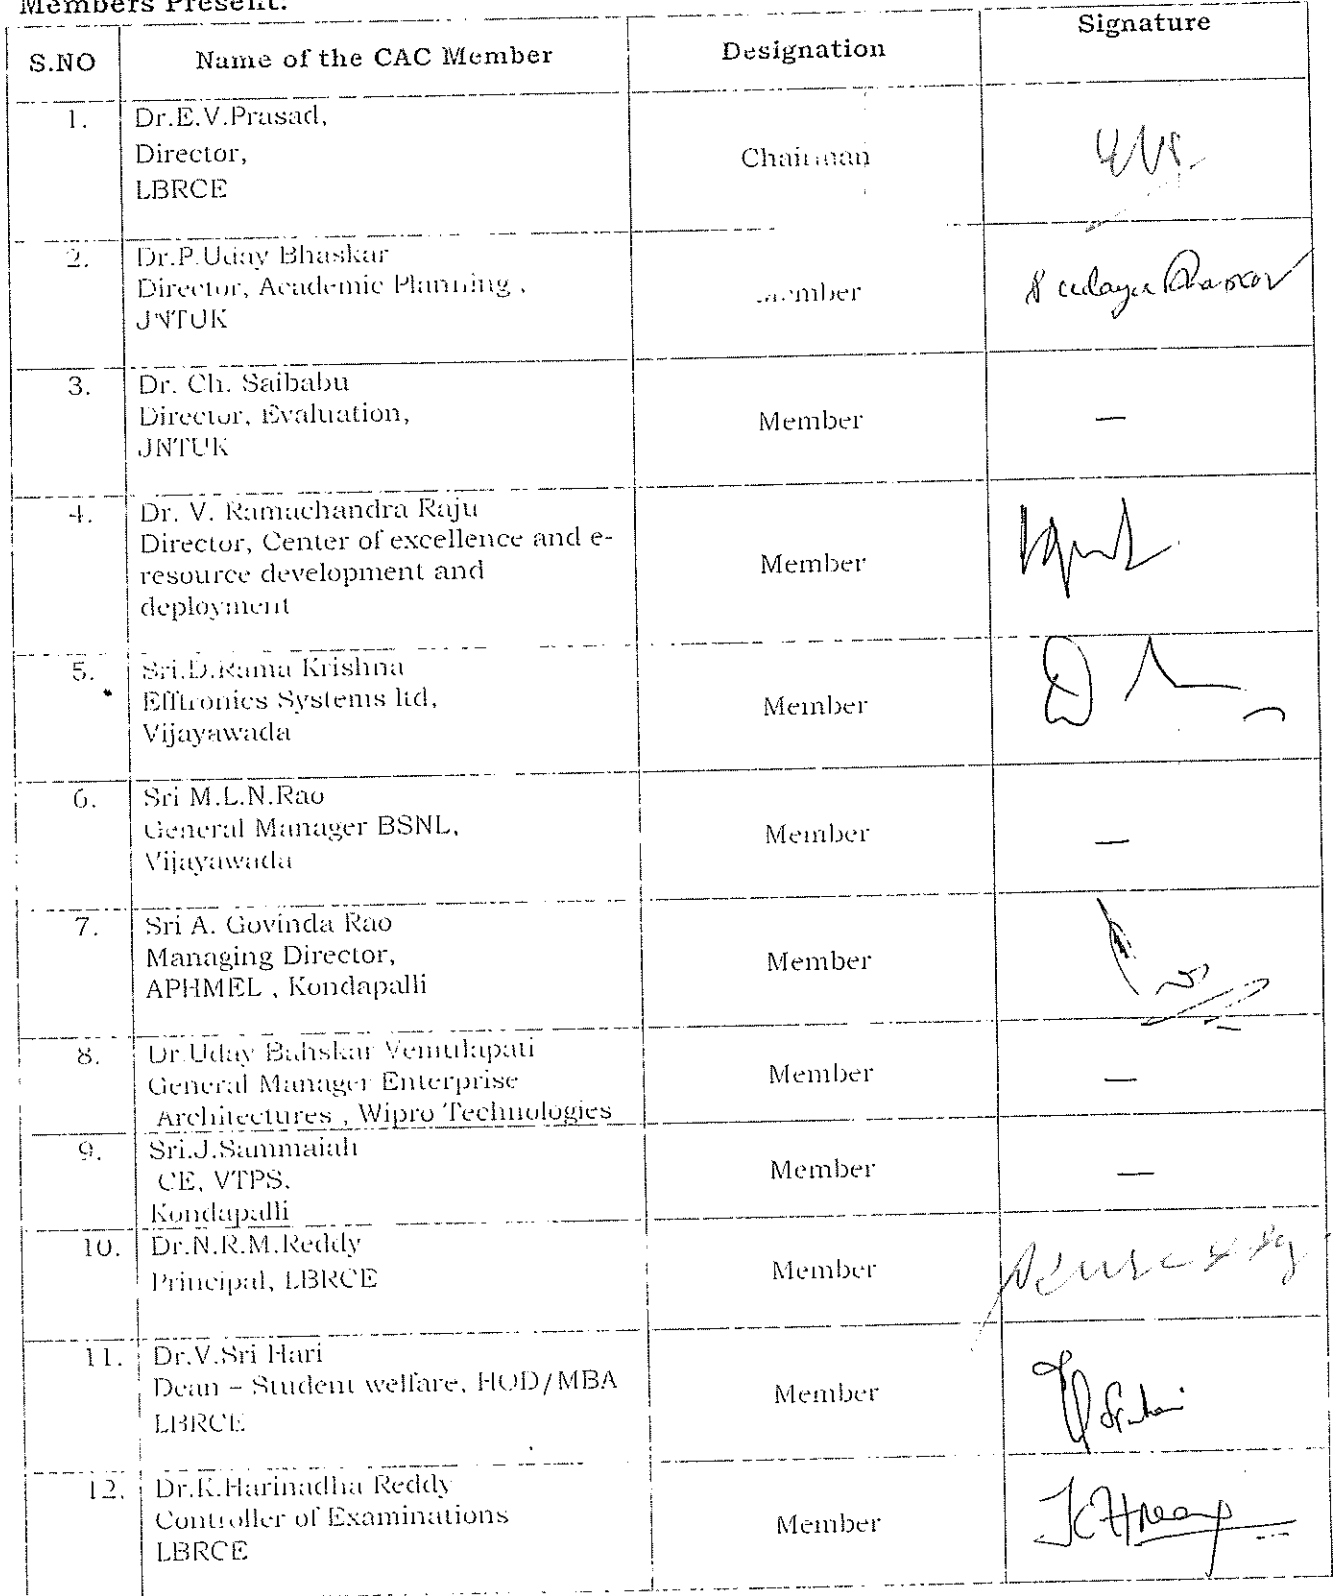 Members Present:
S.NO
Name of the CAC Member
Designation
Signature
1.
Dr.E.V.Prasad,
Director,
LBRCE
Chairman
2.
Dr.P.Uday Bhaskar
Director, Academic Planning ,
JNTUK
Member
3.
Dr. Ch. Saibabu
Director, Evaluation,
JNTUK
Member
—
4.
Dr. V. Ramachandra Raju
Director, Center of excellence and e-
resource development and
deployment
Member
5.
Sri.D.Rama Krishna
Efftronics Systems ltd,
Vijayawada
Member
6.
Sri M.L.N.Rao
General Manager BSNL,
Vijayawada
Member
—
7.
Sri A. Govinda Rao
Managing Director,
APHMEL , Kondapalli
Member
8.
Dr.Uday Bahskar Vemulapati
General Manager Enterprise
Architectures , Wipro Technologies
Member
—
9.
Sri.J.Sammaiah
CE, VTPS.
Kondapalli
Member
—
10.
Dr.N.R.M.Reddy
Principal, LBRCE
Member
11.
Dr.V.Sri Hari
Dean – Student welfare, HOD/MBA
LBRCE
Member
12.
Dr.K.Harinadha Reddy
Controller of Examinations
LBRCE
Member